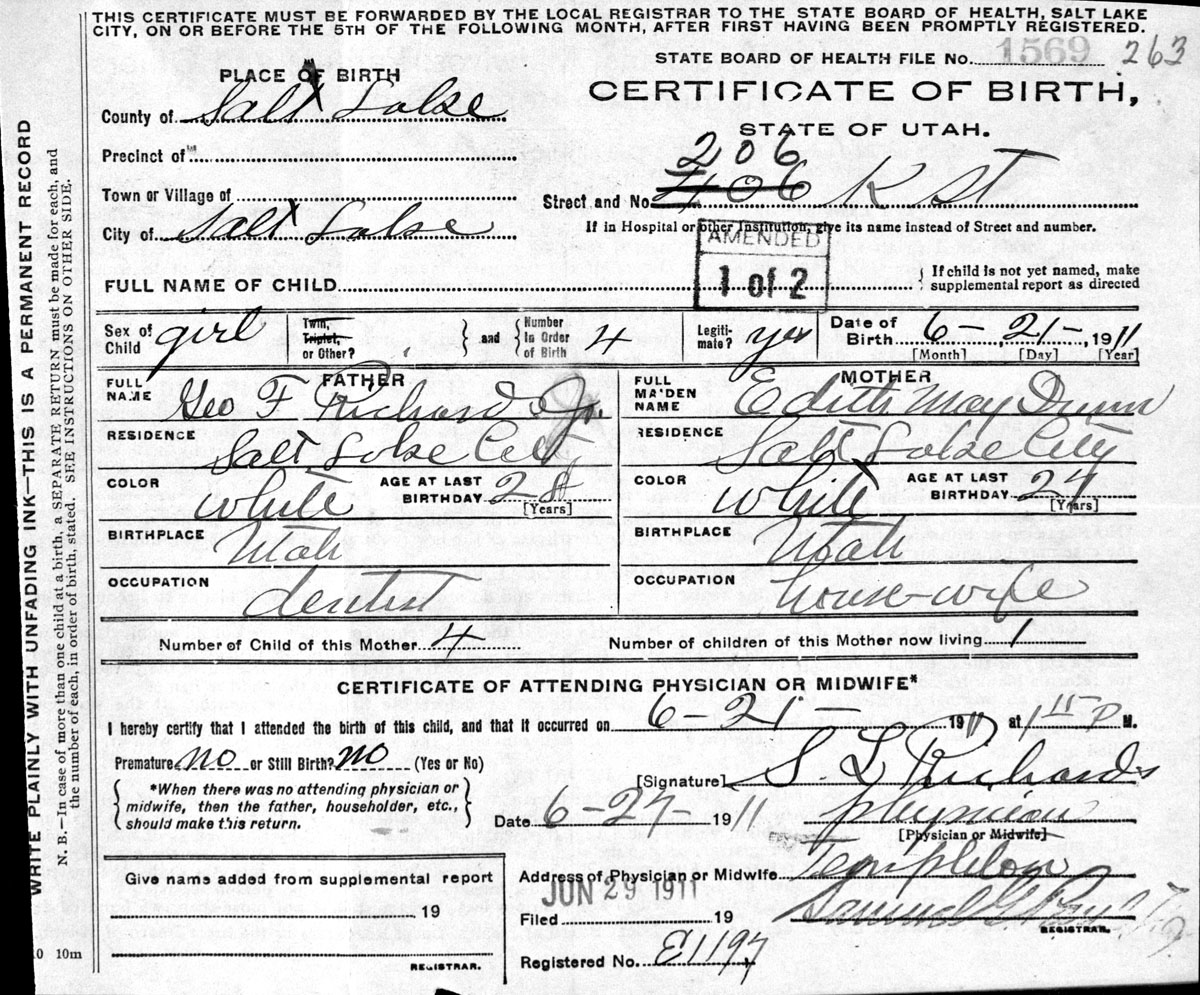 THIS CERTIFICATE MUST BE FORWARDED BY THE LOCAL REGISTRAR TO THE STATE BOARD OF HEALTH, SALT LAKE
CITY, ON OR BEFORE THE 5TH OF THE FOLLOWING MONTH, AFTER FIRST HAVING BEEN PROMPTLY REGISTERED.
STATE BOARD OF HEALTH FILE No. 1569 263
PLACE OF BIRTH
CERTIFICATE OF BIRTH,
STATE OF UTAH.
County of Salt Lake
Precinct of
Town or Village of
City of Salt Lake
206
Street and No. 406 K St
If in Hospital or other Institution, give its name instead of Street and number.
AMENDED
1 of 2
FULL NAME OF CHILD
{ If child is not yet named, make
supplemental report as directed
Sex of Child girl
Twin, Triplet, or Other? } and { Number in Order of Birth 4
Legitimate? yes
Date of Birth 6-21-, 1911
[Month] [Day] [Year]
FATHER
FULL NAME Geo F Richards Jr.
RESIDENCE Salt Lake City
COLOR White AGE AT LAST BIRTHDAY
[Years]
BIRTHPLACE Utah
OCCUPATION dentist
MOTHER
FULL MAIDEN NAME Edith May Dunn
RESIDENCE Salt Lake City
COLOR White AGE AT LAST BIRTHDAY 27
[Years]
BIRTHPLACE Utah
OCCUPATION house-wife
Number of Child of this Mother 4 Number of children of this Mother now living 1
CERTIFICATE OF ATTENDING PHYSICIAN OR MIDWIFE*
I hereby certify that I attended the birth of this child, and that it occurred on 6-21- 1911 at 1 15 P M.
Premature no or Still Birth? no (Yes or No)
{ *When there was no attending physician or
midwife, then the father, householder, etc.,
should make this return. }
[Signature] S. L. Richards
Date 6-27- 1911 physician
[Physician or Midwife]
Address of Physician or Midwife Templeton
JUN 29 1911
Filed 19 Samuel G.
REGISTRAR.
Registered No. E1197
Give name added from supplemental report
19
REGISTRAR.
10 10m
WRITE PLAINLY WITH UNFADING INK—THIS IS A PERMANENT RECORD
N. B.—In case of more than one child at a birth, a SEPARATE RETURN must be made for each, and
the number of each, in order of birth, stated. SEE INSTRUCTIONS ON OTHER SIDE.